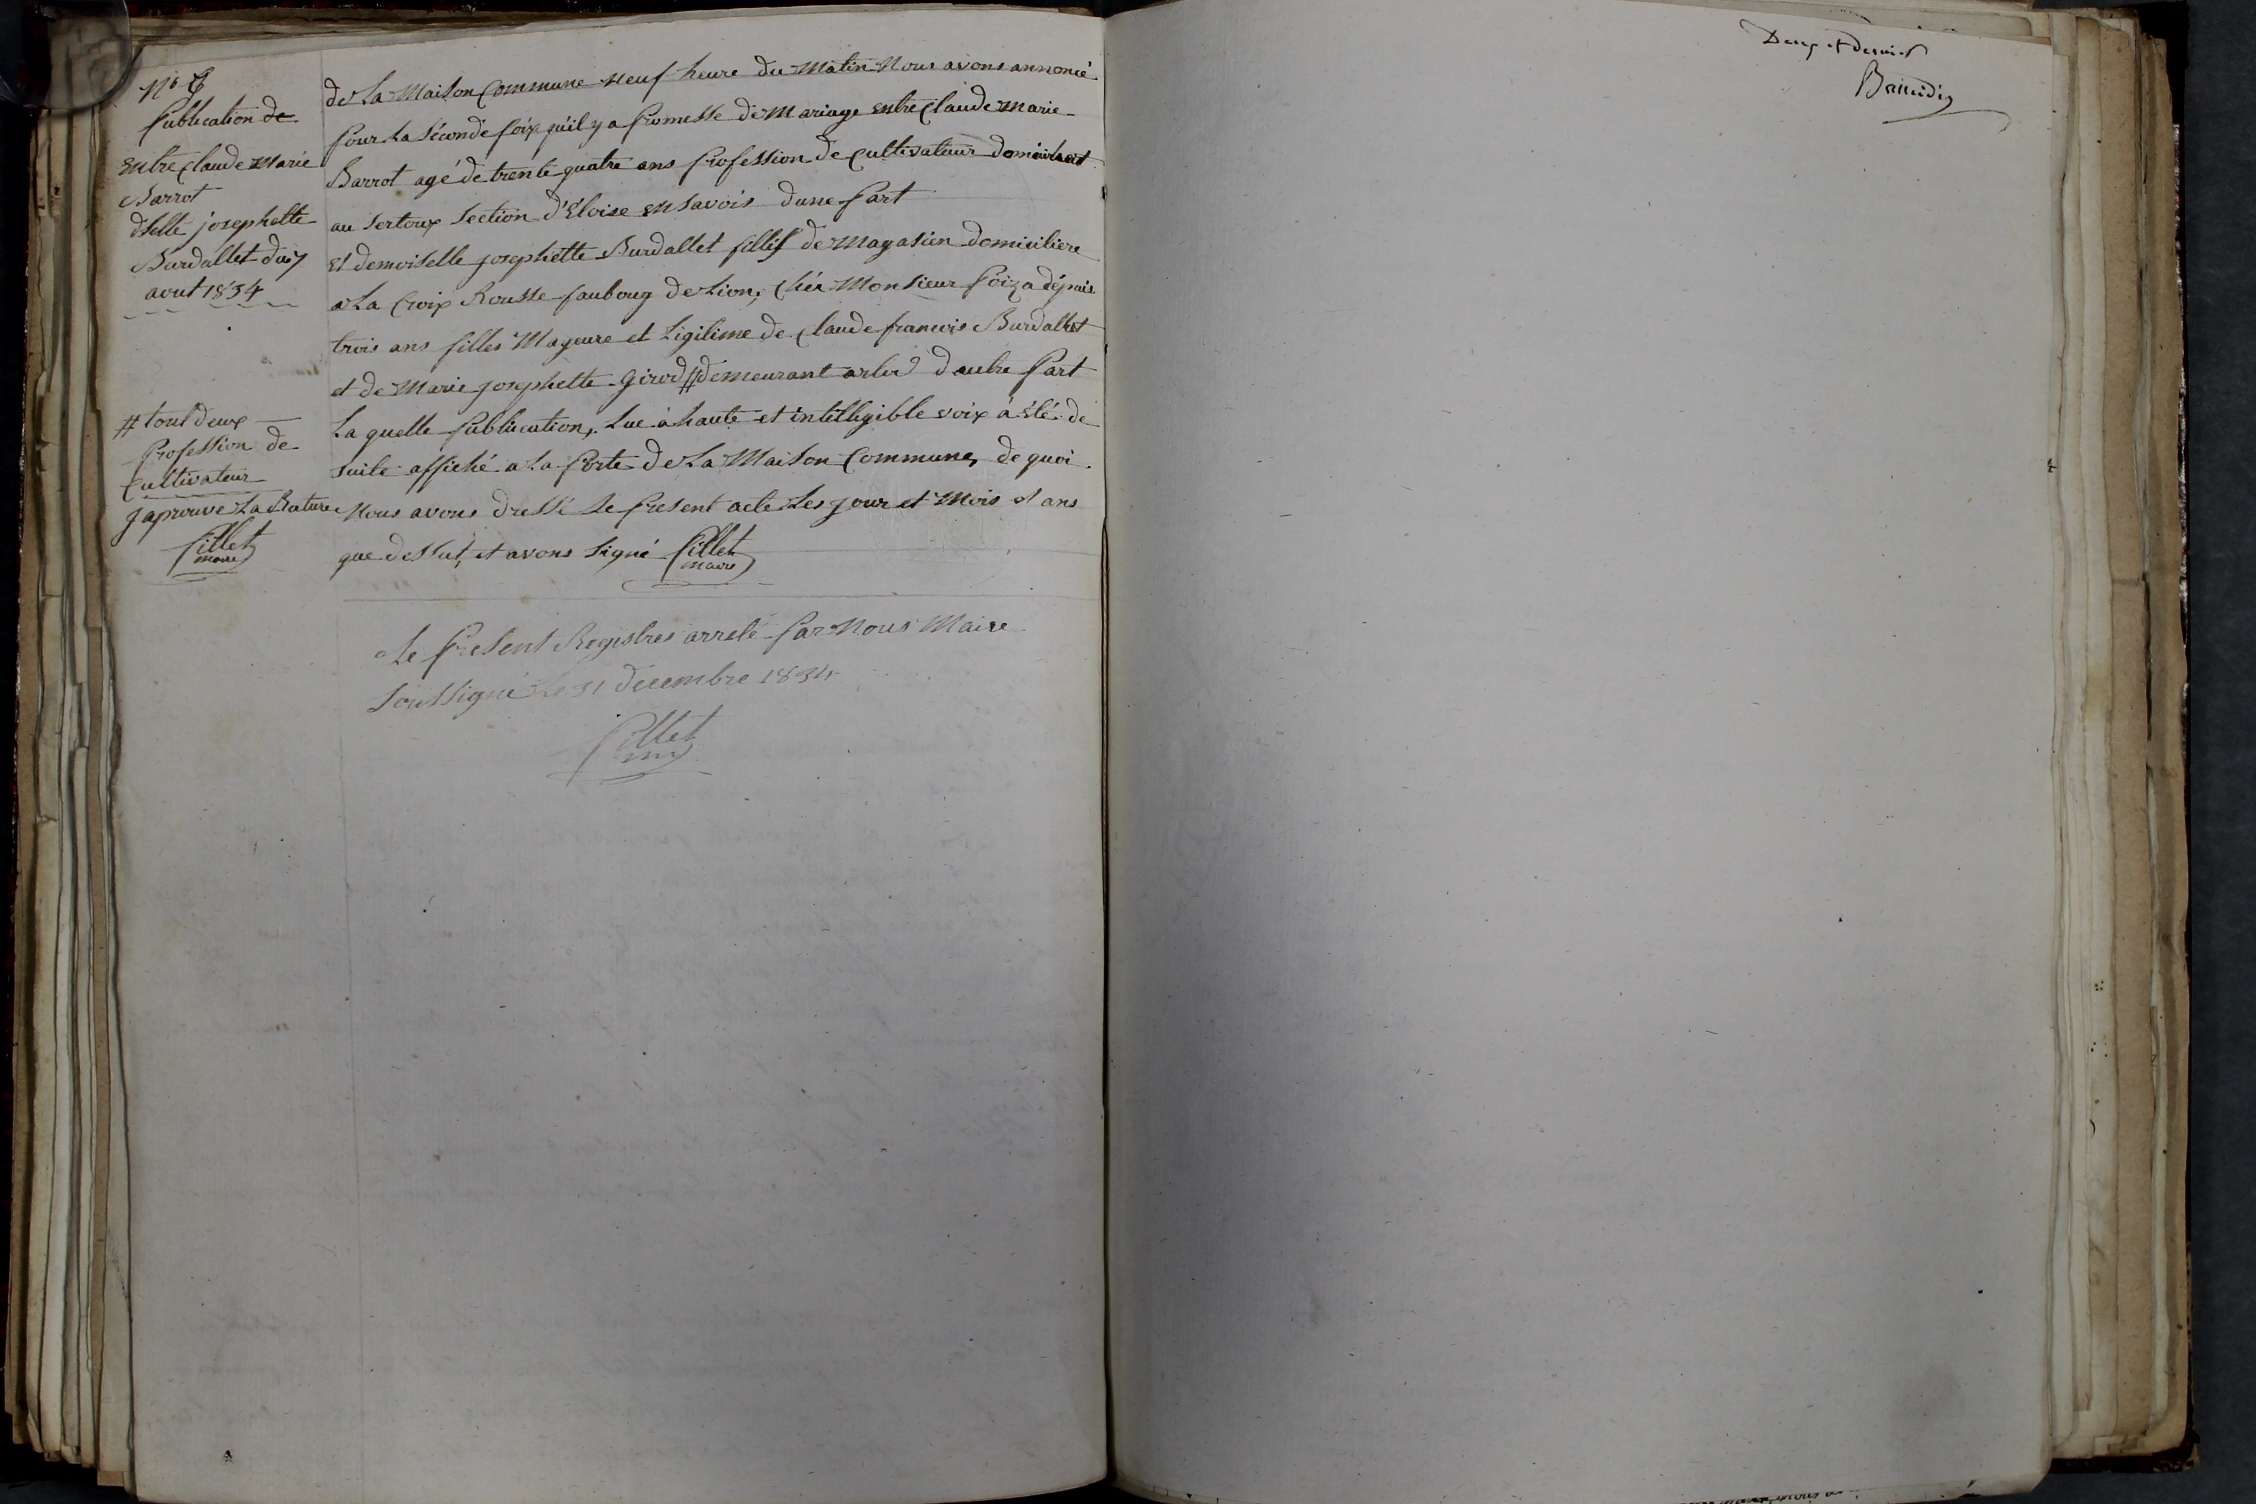 Publication de
entre Claude Marie
Barrot
dselle josephette
Burdallet du 7
aout 1834
# tout deux
Profession de
Cultivateur
japrouve La Rature
Pillet
maire
de La Maison Commune neuf heure du Matin Nous avons annoncé
pour La Séconde foix qu'il y a promesse de Mariage entre Claude Marie
Barrot agé de trente quatre ans profession de Cultivateur
au section d'Eloise en Savois dune part
et demoiselle josephette Burdallet de Magasien domiciliere
a La Croix Rousse faubourg de Lion, chér Monsieur dépuis
trois ans filles Mageure et Ligitime de Claude francois Burdallet
et de Marie josephette Girod # demeurant arlod d autre Part
La quelle publiication, Lue à haute et intélligible voix à été de
suite affiché a La porte de La Maison Commune, de quoi
Nous avons dressé Le present acte Les jour et Mois et ans
que dessus, et avons Signé Pillet
maire
Le present Registres arrelé par Nous Maire
Soussigné Le 31 decembre 1834
Pillet
Deux et dernier